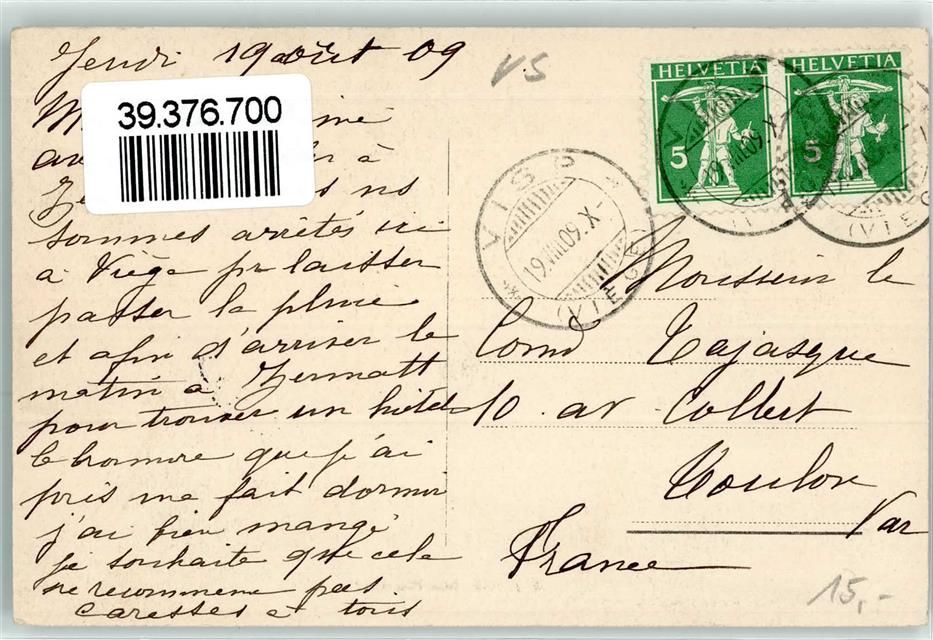 Jeudi 19 août 09
VS
HELVETIA HELVETIA
5 5
39.376.700
M
av à
Ze ns
sommes arrêtés ici
à Viège pr laisser
passer la pluie
et afin d'arriver le
matin à Zermatt
pour trouver un hôtel
le bromure que j'ai
pris me fait dormir
j'ai bien mangé
je souhaite que cela
ne recommence pas
caresses à tous
VISP
19.VIII.09.X-
(VIEGE)
Monsieur le
Comd Lajasque
10 av Colbert
Toulon
Var
France
15,-